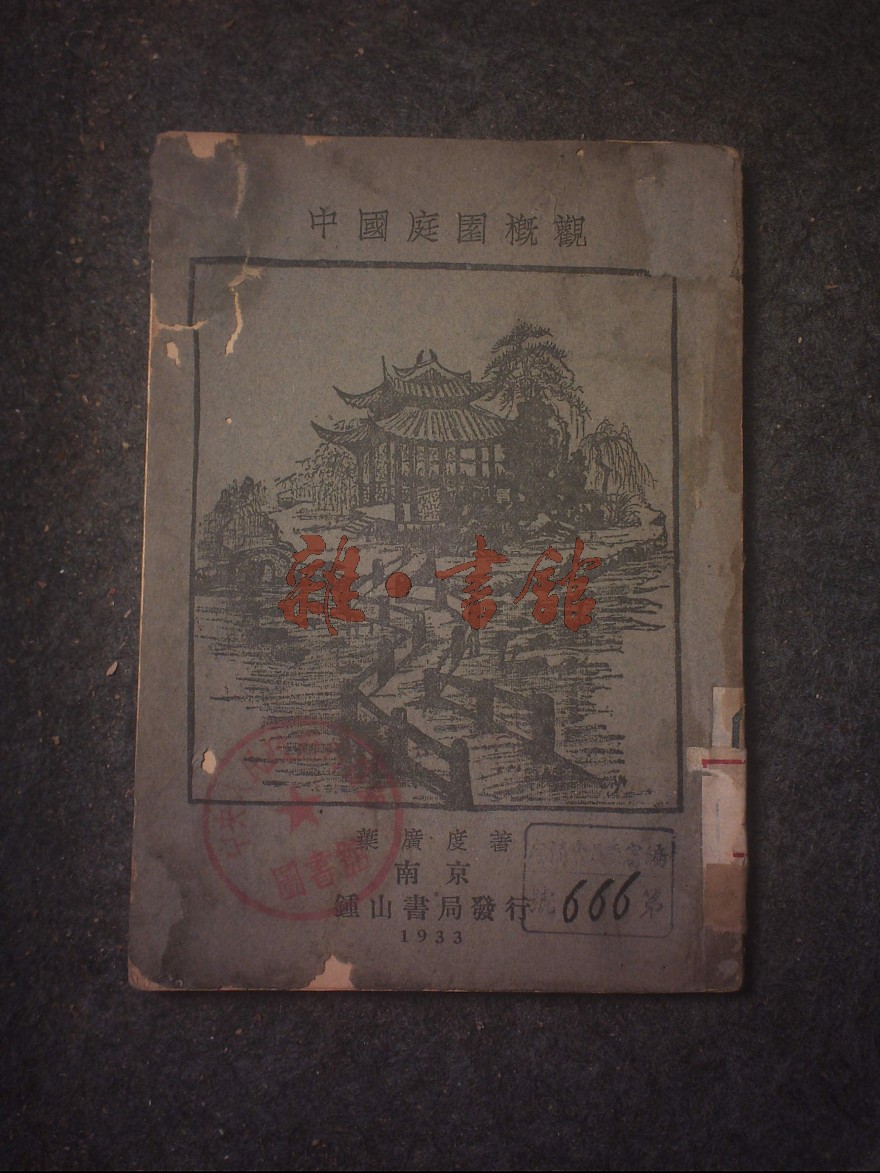 中國庭園概觀
雜·書館
葉廣度著
南京
鍾山書局發行
1933
圖書館
編
第666號